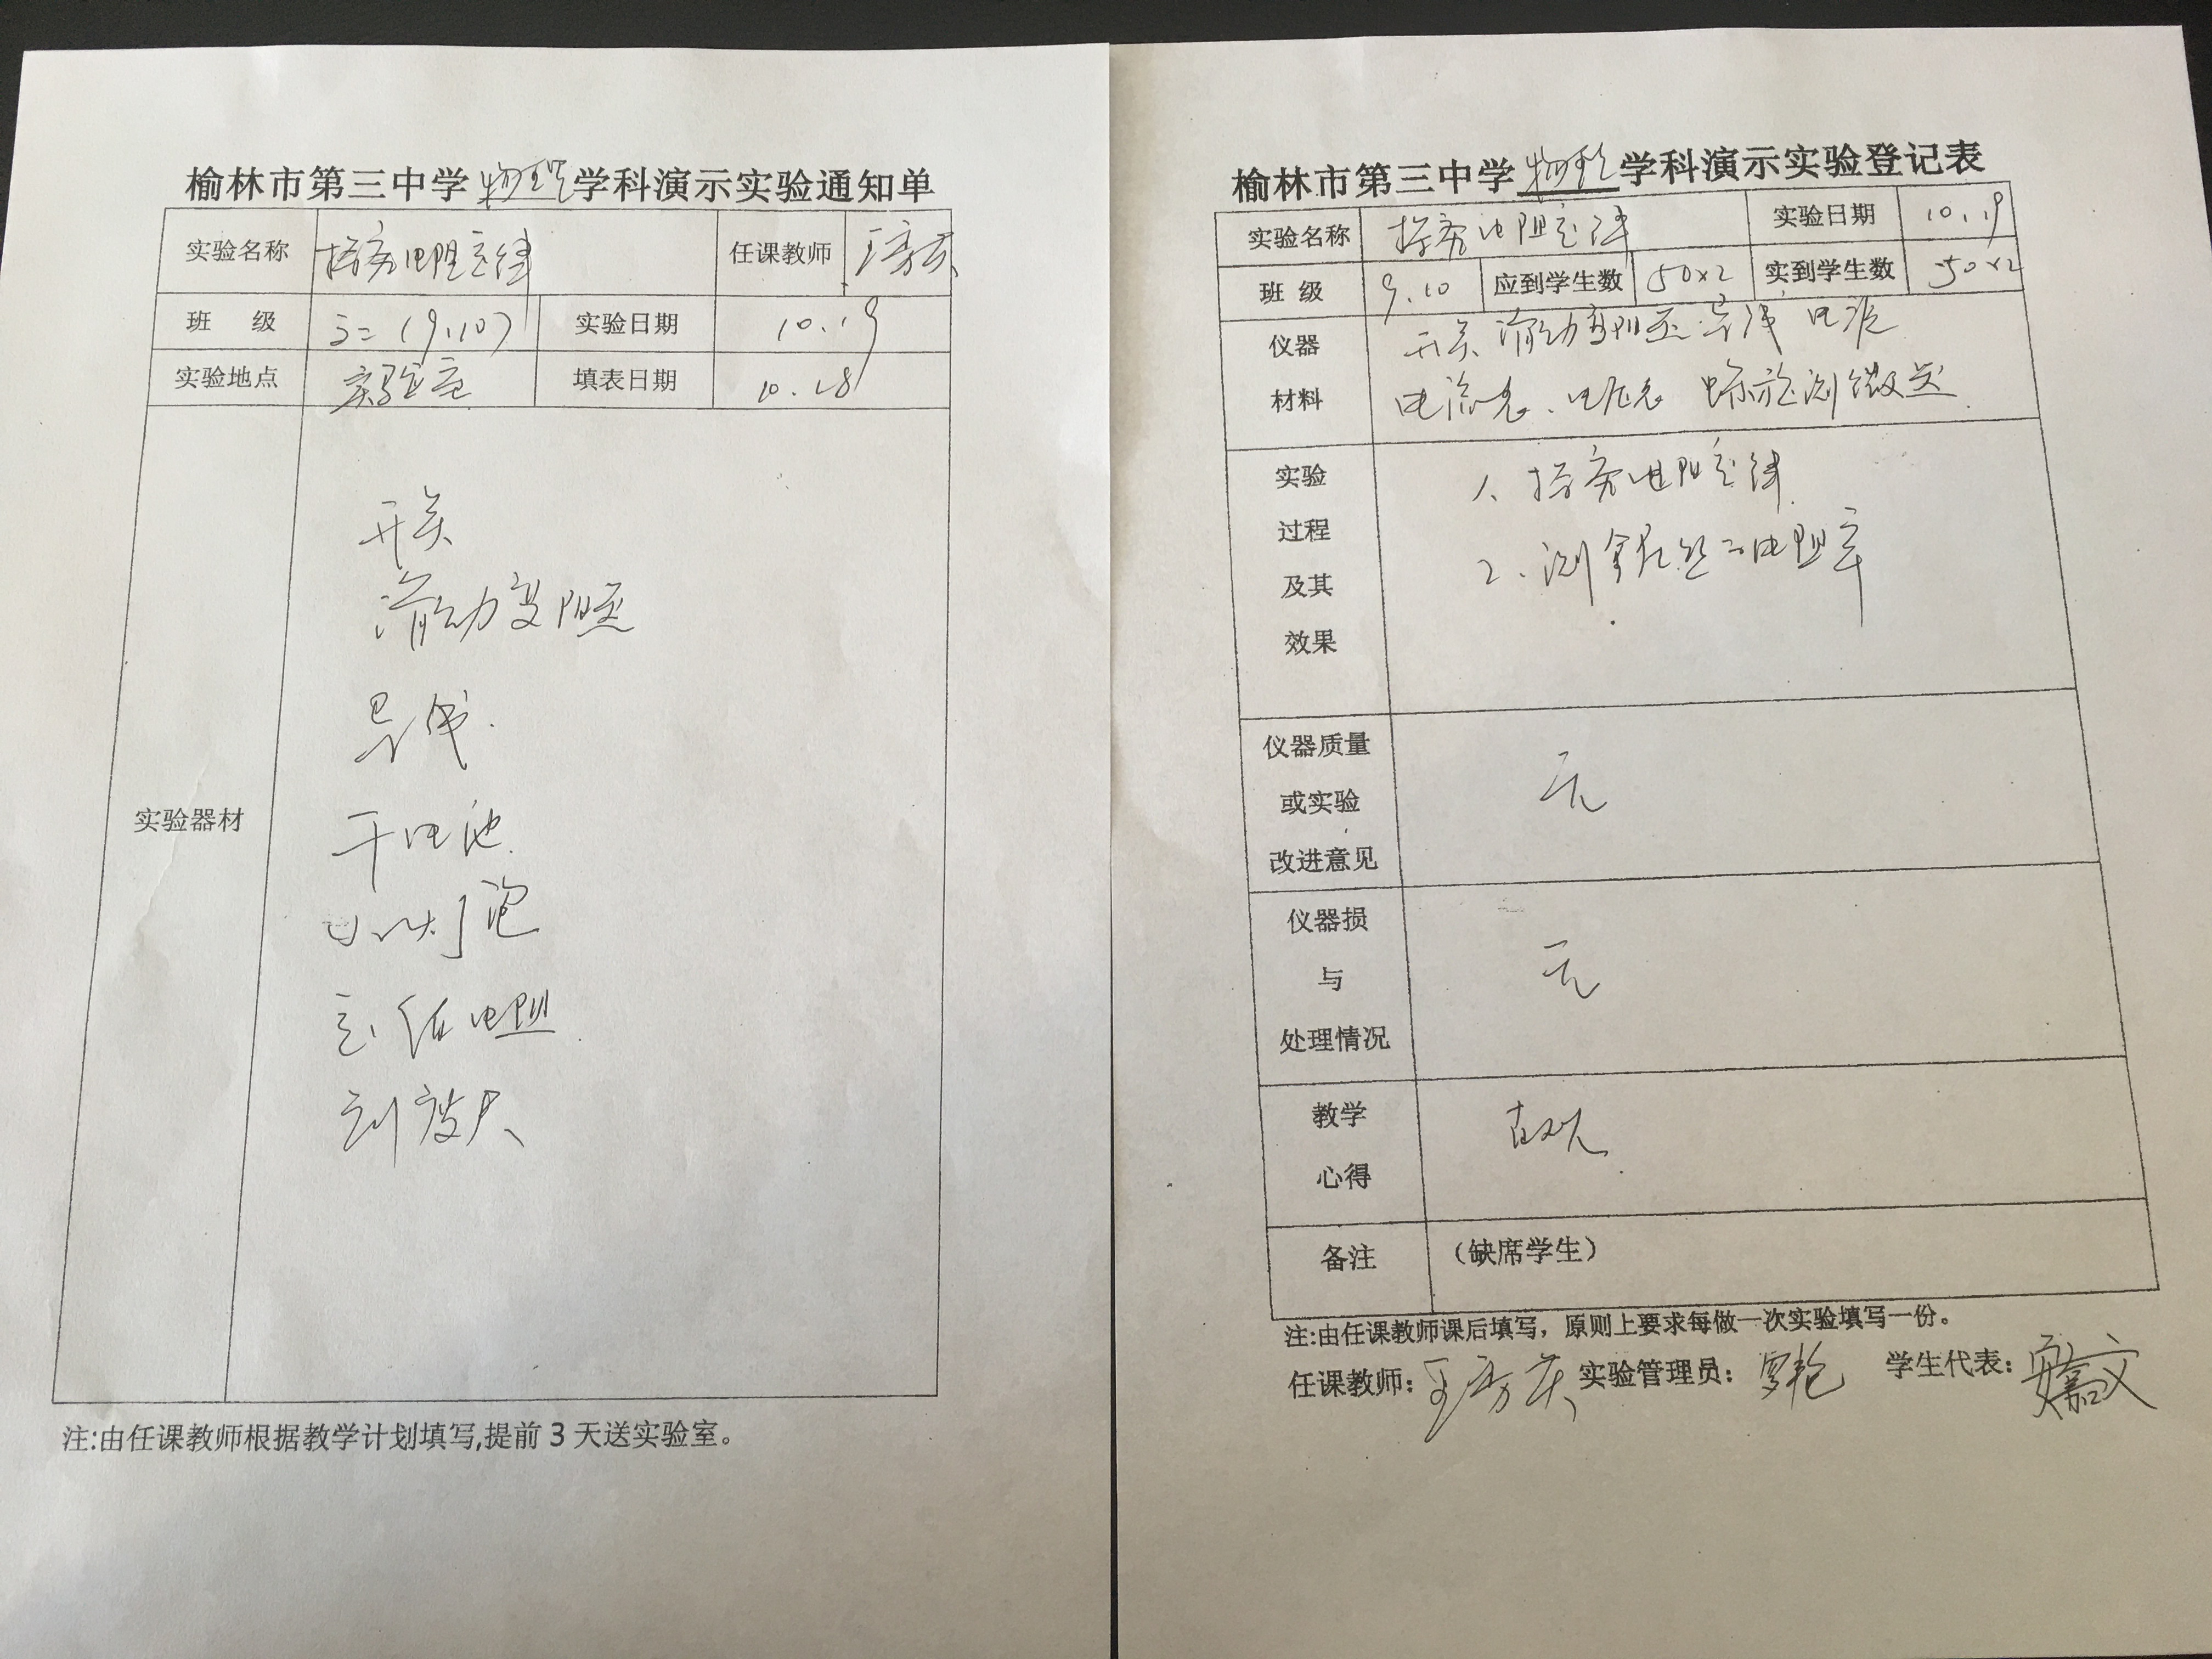 榆林市第三中学 物理 学科演示实验通知单
实验名称 探究电阻定律 任课教师
班 级 高二(9.10) 实验日期 10.19
实验地点 实验室 填表日期 10.18
实验器材
开关
滑动变阻器
导线
干电池
小灯泡
定值电阻
刻度尺
注:由任课教师根据教学计划填写,提前 3 天送实验室。
榆林市第三中学 物理 学科演示实验登记表
实验名称 探究电阻定律 实验日期 10.19
班 级 9.10 应到学生数 50×2 实到学生数 50×2
仪器 开关 滑动变阻器 导线 电源
材料 电流表、电压表 螺旋测微器
实验 1、探究电阻定律
过程 2、测金属丝的电阻率
及其
效果
仪器质量
或实验 无
改进意见
仪器损
与 无
处理情况
教学 直观
心得
备注 (缺席学生)
注:由任课教师课后填写，原则上要求每做一次实验填写一份。
任课教师: 实验管理员: 学生代表: